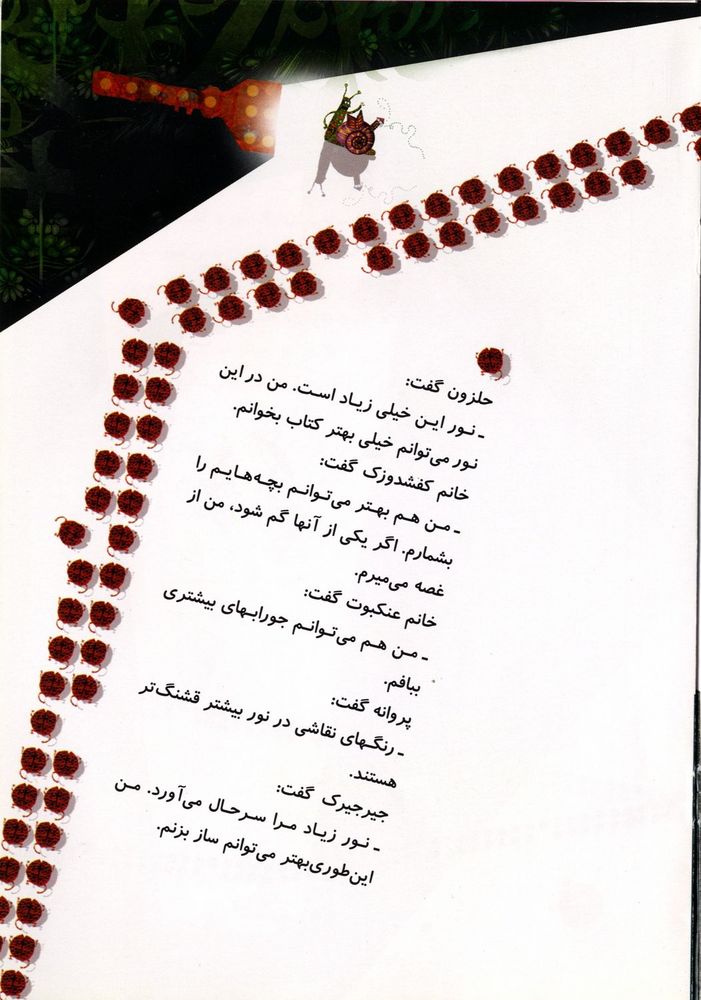 حلزون گفت:
ـ نور این خیلی زیاد است. من در این
نور می‌توانم خیلی بهتر کتاب بخوانم.
خانم کفشدوزک گفت:
ـ من هم بهتر می‌توانم بچه‌هایم را
بشمارم. اگر یکی از آنها گم شود، من از
غصه می‌میرم.
خانم عنکبوت گفت:
ـ من هم می‌توانم جورابهای بیشتری
ببافم.
پروانه گفت:
ـ رنگهای نقاشی در نور بیشتر قشنگ‌تر
هستند.
جیرجیرک گفت:
ـ نور زیاد مرا سرحال می‌آورد. من
این‌طوری‌بهتر می‌توانم ساز بزنم.